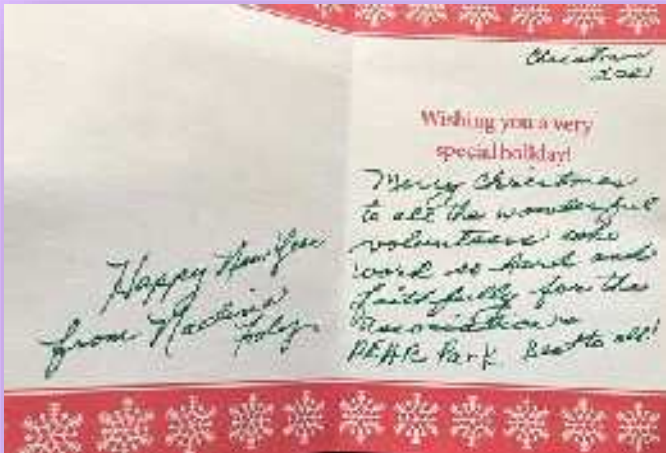 Happy New Year
from Nadine
Foley
Christmas
2021
Wishing you a very
special holiday!
Merry Christmas
to all the wonderful
volunteers who
work so hard and
faithfully for the
PEAR Park Best to all!